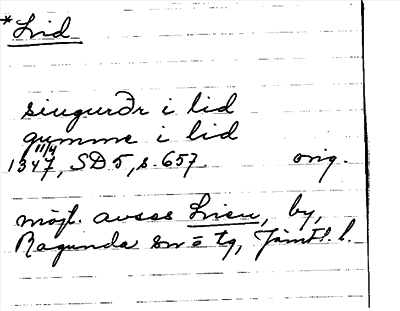 *Lid
siugurðr i lid
gumme i lid
1347 11/4, SD 5, s. 657. orig.
möjl. avses Lien, by,
Ragunda sn o tg, Jämtl. l.